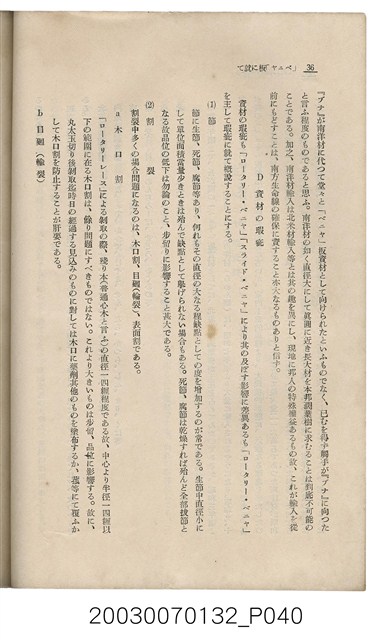 36　「ベニヤ」板に就て
『ブナ』が南洋材に代つて堂々と「ベニヤ」板資材として向けられたといふものでなく、已むを得ず觸手が『ブナ』に向つた
と言ふ程度のものであると思ふ。南洋材の如く直徑大にして眞圓に近き長大材を本邦濶葉樹に求むることは到底不可能の
ことである。加之、南洋材輸入は北米材輸入等とは其の趣を異にし、現地に邦人の特殊權益あるもの故、これが輸入を從
前にもどすことは、南方生命線の確保に資すること亦大なるものありと信ず。
D 資材の瑕疵
資材の瑕疵も「ロータリー・ベニヤ」「スライド・ベニヤ」により其の及ぼす影響に差異あるも「ロータリー・ベニヤ」
を主として瑕疵に就て概說することにする。
(1) 節
節に生節、死節、腐節等あり、何れもその直徑の大なる程缺點としての度を增加するのが常である。生節中直徑小に
して單位面積當量少きときは殆んど缺點として擧げられない場合もある。死節、腐節は乾燥すれば殆んど全部拔節と
なる故品位の低下は勿論のこと、步留りに影響すること甚大である。
(2) 割裂
割裂中多くの場合問題になるのは、木口割、目廻(輪裂)、表面割である。
a 木口割
「ロータリーレース」による剝取の際、殘り木(普通心木と言ふ)の直徑一四糎程度である故、中心より半徑一四糎以
下の範圍に在る木口割は、餘り問題にすべきものではない。これより大きいものは步留、品位に影響する。故に、
丸太玉切り後剝取迄時日の經過する見込みのものに對しては木口に藥劑其他のものを塗布するか、菰等にて覆ふか
して木口割を防止することが肝要である。
b 目廻(輪裂)
20030070132_P040